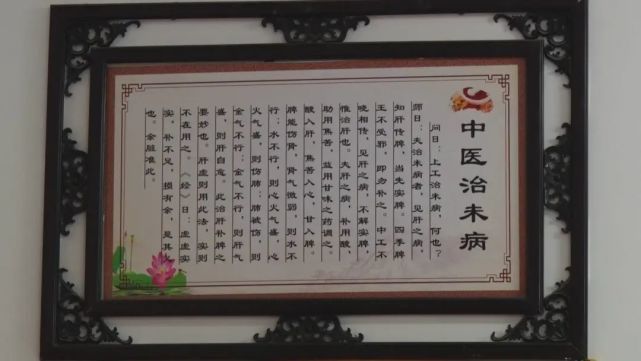 中医治未病
问曰：上工治未病，何也？
师曰：夫治未病者，见肝之病，
知肝传脾，当先实脾。四季脾
王不受邪，即勿补之。中工不
晓相传，见肝之病，不解实脾，
惟治肝也。夫肝之病，补用酸，
助用焦苦，益用甘味之药调之。
酸入肝，焦苦入心，甘入脾。
脾能伤肾，肾气微弱，则水不
行；水不行，则心火气盛，心
火气盛，则伤肺；肺被伤，则
金气不行；金气不行，则肝气
盛，则肝自愈。此治肝补脾之
要妙也。肝虚则用此法，实则
不在用之。《经》曰：虚虚实
实，补不足，损有余，是其义
也。余脏准此。